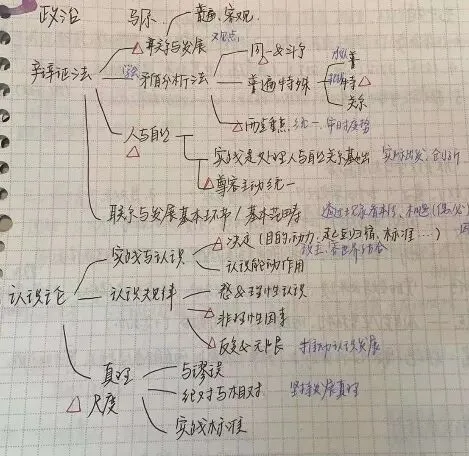 政治 马原
普遍、客观
联系与发展 观点
同一&斗争
辩证法 矛盾分析法 普遍特殊
普
特
关系
两点重点 统一、审时度势
人与自然
实践是处理人与自然关系基础 实际出发、创新
尊客主动统一
联系与发展基本环节/基本范畴 透过现象看本质
实践与认识 决定(目的动力、起点归宿、标准…)
认识能动作用
认识论 认识规律 感&理性认识
非理性因素
反复&无限 推动认识发展
真理 与谬误
尺度 绝对与相对 坚持发展真理
实践标准